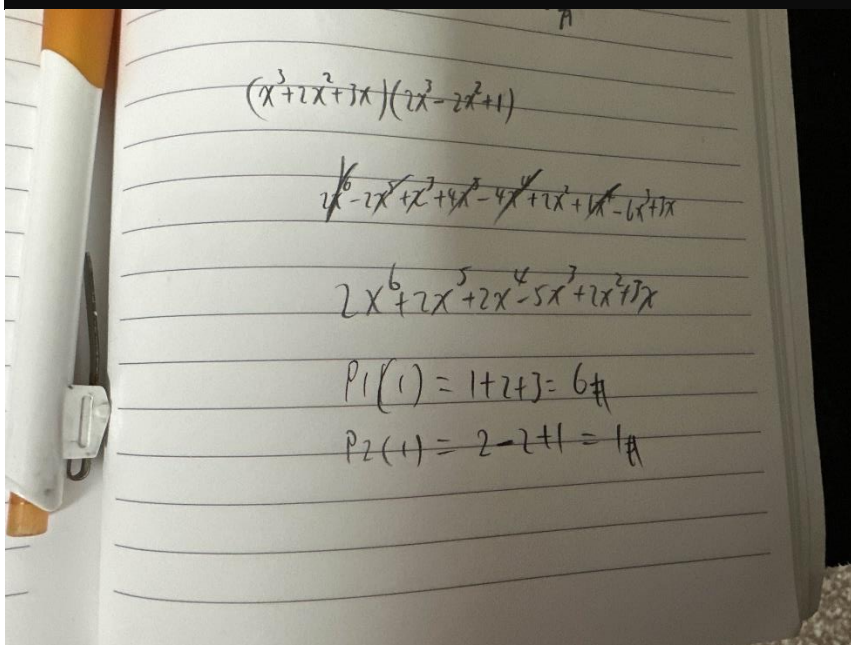 (x³+2x²+3x)(2x³-2x²+1)
2x⁶-2x⁵+x³+4x⁵-4x⁴+2x²+6x⁴-6x³+3x
2x⁶+2x⁵+2x⁴-5x³+2x²+3x
P1(1) = 1+2+3= 6#
P2(1) = 2-2+1 = 1#